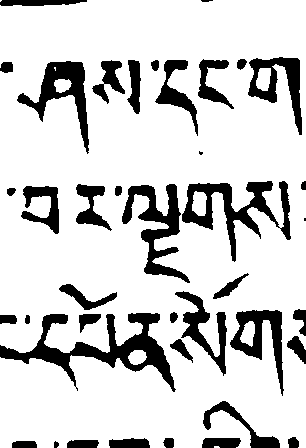 ་ཤས་དང་ག
་བར་ལྗགས་
ང་དཔོན་སོགས